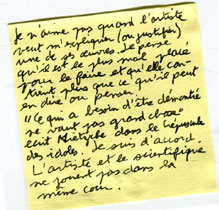 Je n'aime pas quand l'artiste
veut m'expliquer (ou justifier)
une de ses œuvres. Je pense
qu'il est le plus mal placé
pour le faire et qu'elle con-
tient plus que ce qu'il peut
en dire ou penser.
"Ce qui a besoin d'être démontré
ne vaut pas grand chose"
écrit Nietzsche dans le Crépuscule
des idoles. Je suis d'accord
L'artiste et le scientifique
ne jouent pas dans la
même cour.